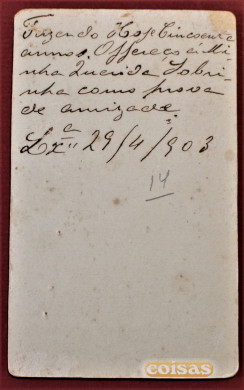 Fazendo Hoje Cincoenta
annos. Offereço á Mi
nha Querida Sobri
nha como prova
de amizade.
Lxª 29/4/903
14
coisas